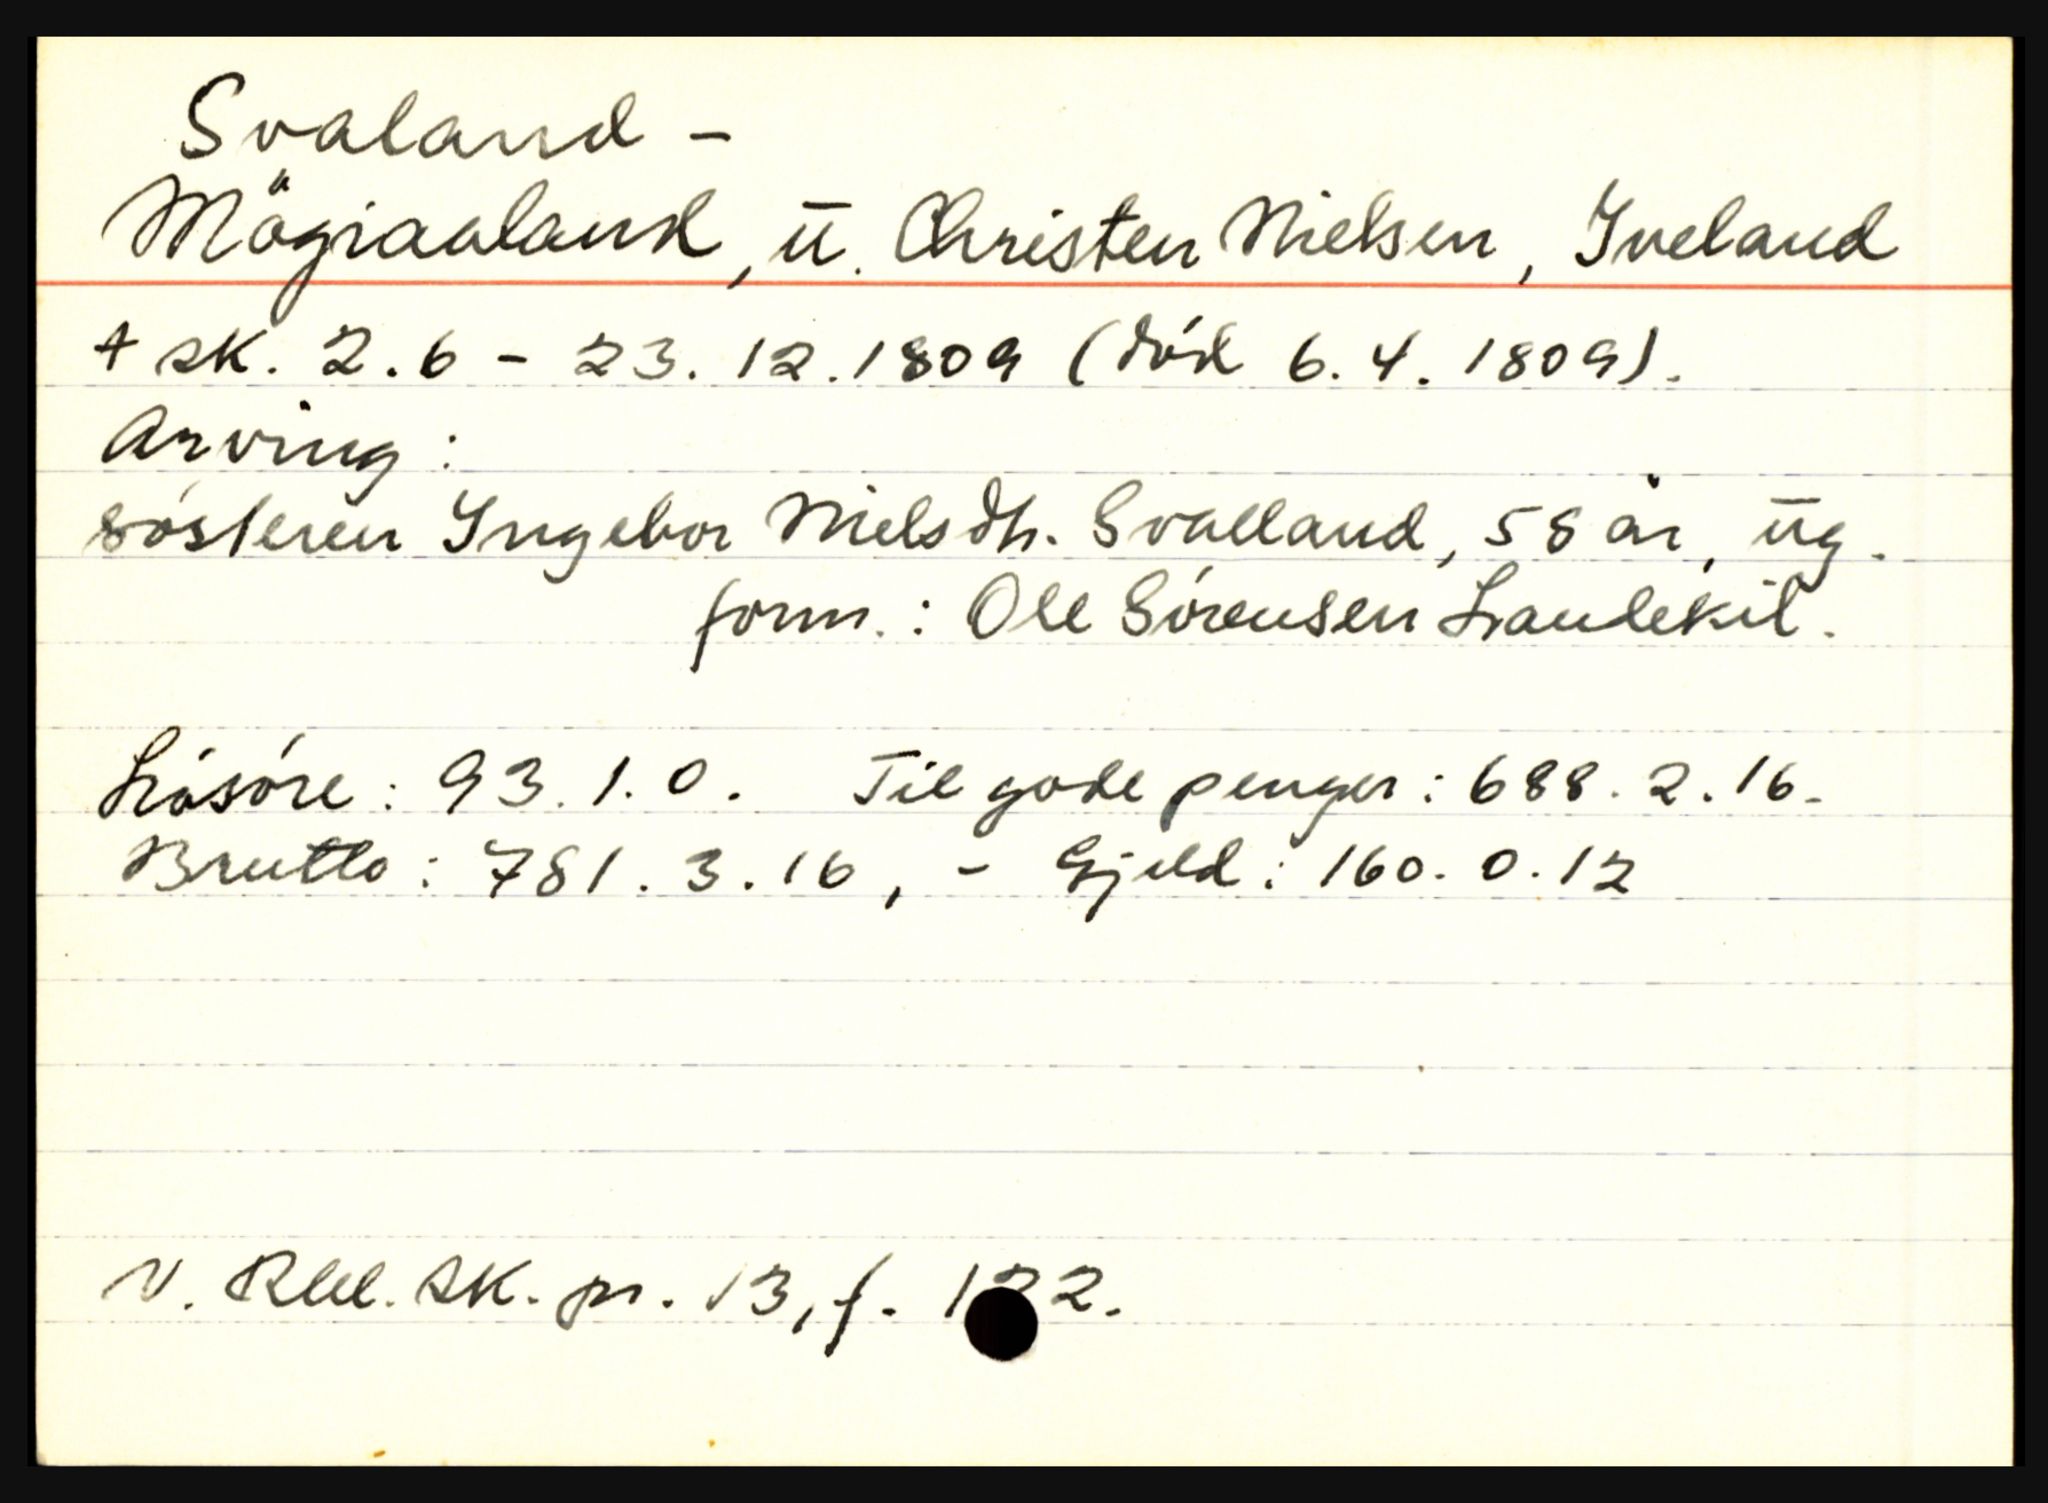 Svaland -
Mögraaland, ū. Christen Nielsen, Iveland
+ sk. 2.6 - 23.12.1809 (död 6.4.1809).
Arving:
sösteren Ingebor Nielsdtr. Svalland, 58 år, ūg.
form.: Ole Sörensen Landekil.
Lösöre: 93.1.0. Tilgode penger: 688.2.16.
Brutto: 781.3.16, - Gjeld: 160.0.12
V. Rbl. sk. pr. 13, f. 122.